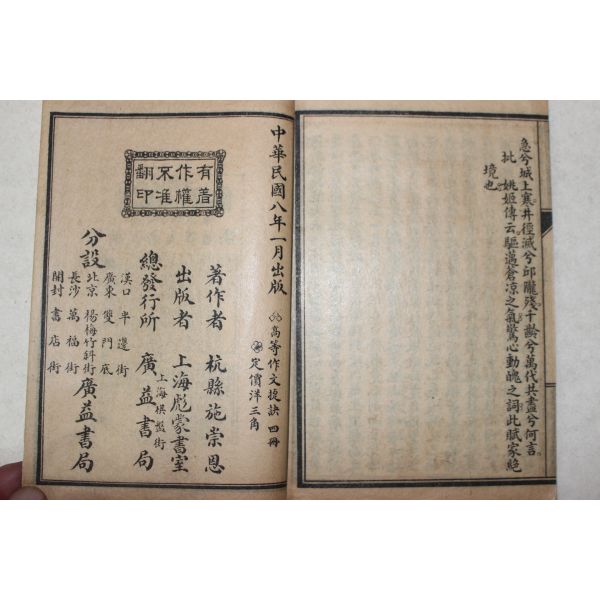 急兮城上寒井徑滅兮邱隴殘千齡兮萬代共盡兮何言
批 姚姬傳云驅邁蒼凉之氣驚心動魄之詞此賦家絶
境也
中華民國八年一月出版
高等作文捷訣 四冊
定價洋三角
有著
作權
不准
翻印
著作者 杭縣施崇恩
出版者 上海彪蒙書室
上海棋盤街
總發行所 廣益書局
分設
漢口半邊街
廣東雙門底
北京楊梅竹斜街
長沙萬福街
開封書店街
廣益書局